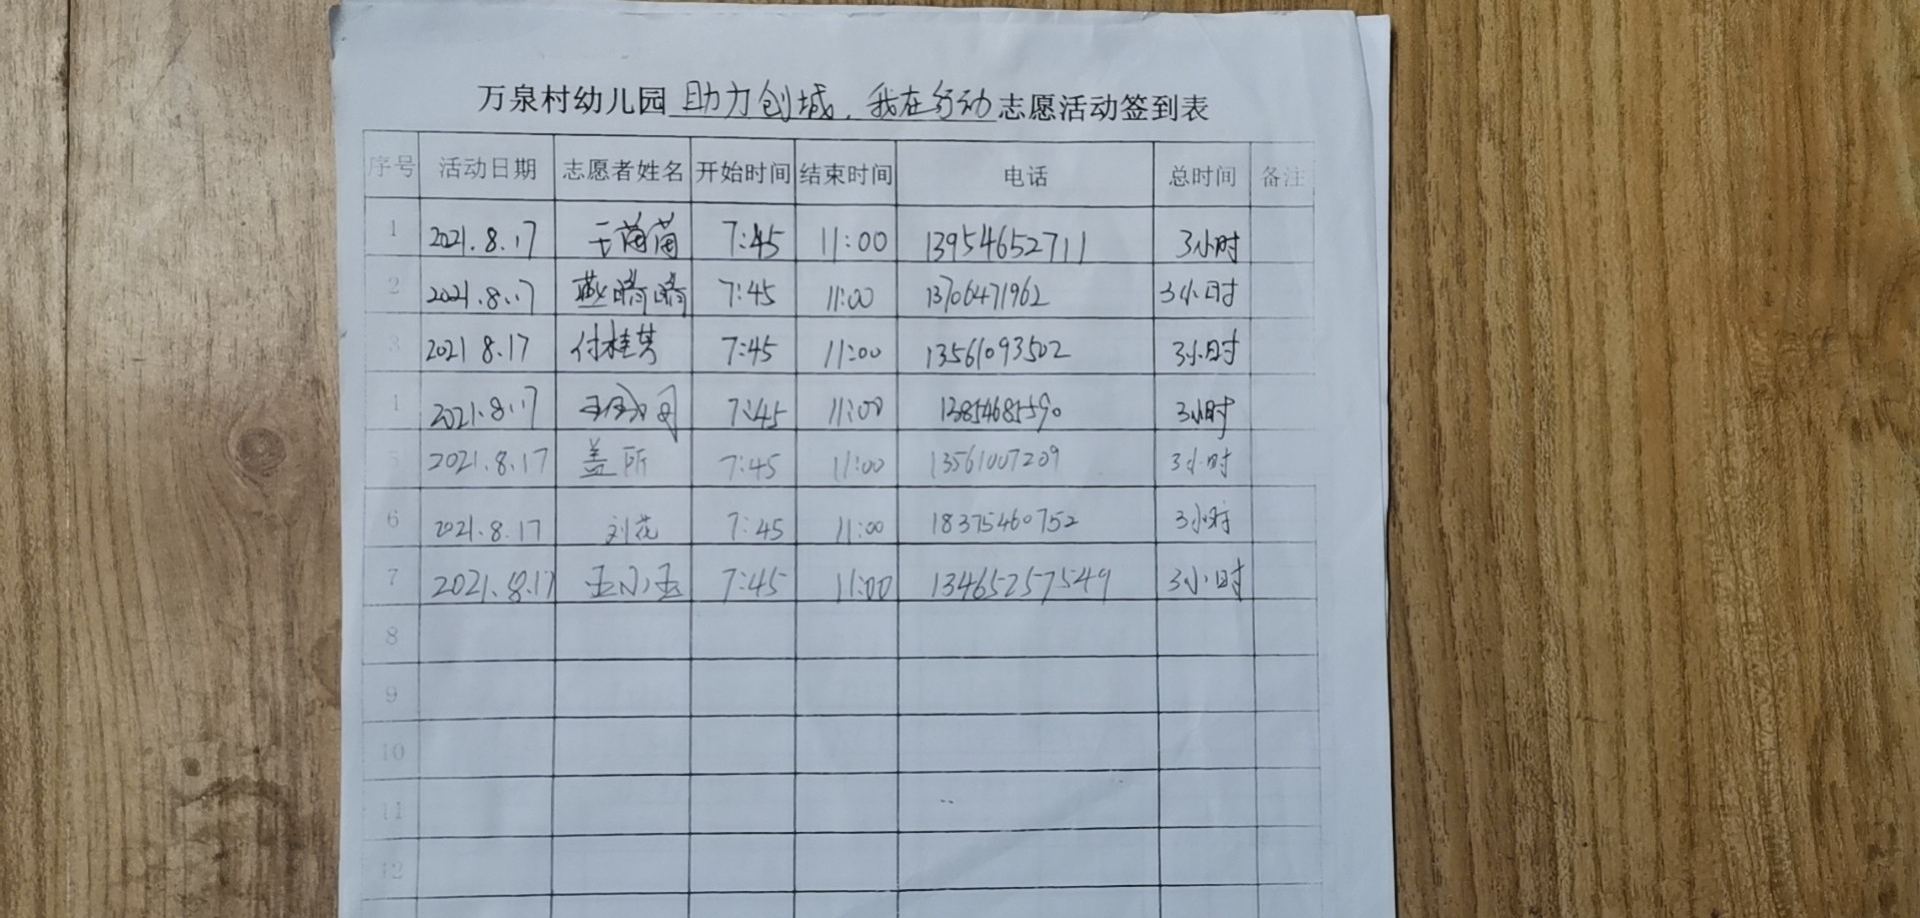 万泉村幼儿园 助力创城，我在行动 志愿活动签到表
序号 活动日期 志愿者姓名 开始时间 结束时间 电话 总时间 备注
1 2021.8.17 7:45 11:00 13954652711 3小时
2 2021.8.17 燕晴晴 7:45 11:00 13706471962 3小时
3 2021 8.17 付桂芳 7:45 11:00 13561093502 3小时
2021.8.17 7:45 11:00 13854685590 3小时
5 2021.8.17 盖所 7:45 11:00 13561007209 3小时
6 2021.8.17 刘花 7:45 11:00 18375460752 3小时
7 2021.8.17 王小玉 7:45 11:00 13465257549 3小时
8
9
10
11
12